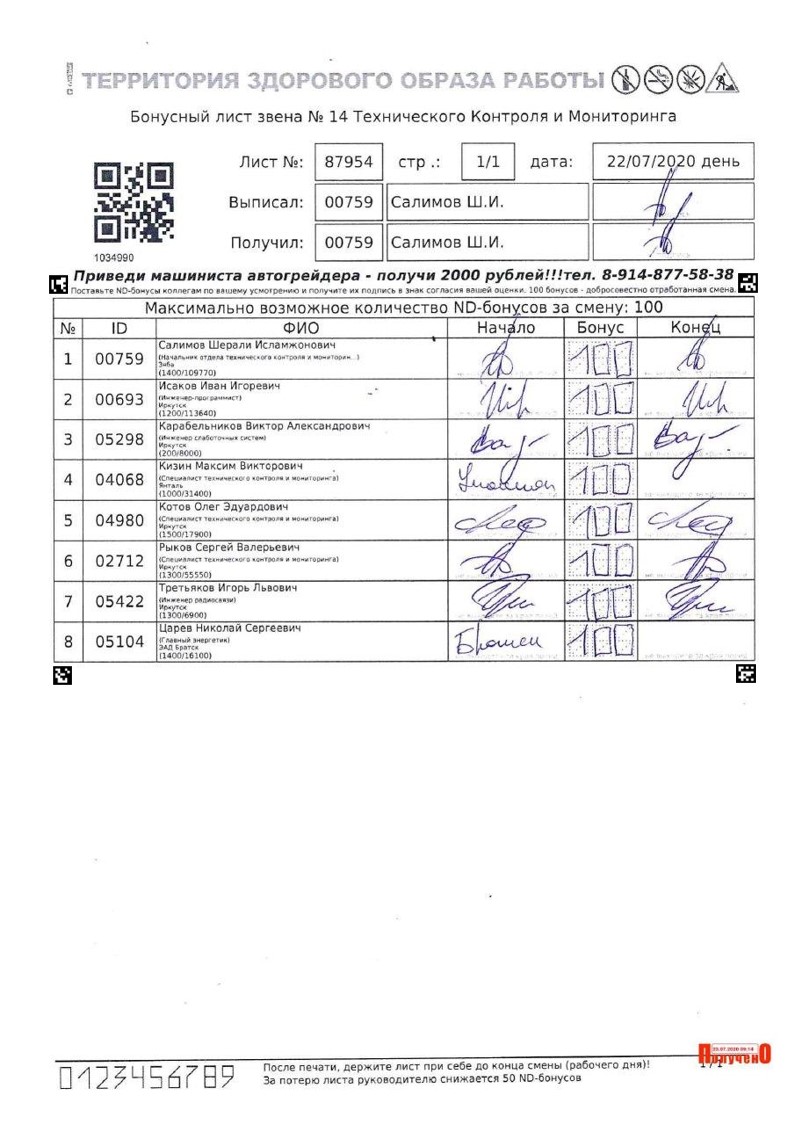 ТЕРРИТОРИЯ ЗДОРОВОГО ОБРАЗА РАБОТЫ
Бонусный лист звена № 14 Технического Контроля и Мониторинга
Лист №: 87954 стр .: 1/1 дата: 22/07/2020 день
Выписал: 00759 Салимов Ш.И.
Получил: 00759 Салимов Ш.И.
1034990
Приведи машиниста автогрейдера - получи 2000 рублей!!!тел. 8-914-877-58-38
Поставьте ND-бонусы коллегам по вашему усмотрению и получите их подпись в знак согласия вашей оценки. 100 бонусов - добросовестно отработанная смена.
Максимально возможное количество ND-бонусов за смену: 100
№ ID ФИО Начало Бонус Конец
1 00759 Салимов Шерали Исламжонович 100
(Начальник отдела технического контроля и мониторин...)
Зяба
(1400/109770)
2 00693 Исаков Иван Игоревич 100
(Инженер-программист)
Иркутск
(1200/113640)
3 05298 Карабельников Виктор Александрович 100
(Инженер слаботочных систем)
Иркутск
(200/8000)
4 04068 Кизин Максим Викторович 100
(Специалист технического контроля и мониторинга)
Янталь
(1000/31400)
5 04980 Котов Олег Эдуардович 100
(Специалист технического контроля и мониторинга)
Иркутск
(1500/17900)
6 02712 Рыков Сергей Валерьевич 100
(Специалист технического контроля и мониторинга)
Иркутск
(1300/55550)
7 05422 Третьяков Игорь Львович 100
(Инженер радиосвязи)
Иркутск
(1300/6900)
8 05104 Царев Николай Сергеевич 100
(Главный энергетик)
ЗАД Братск
(1400/16100)
0123456789
После печати, держите лист при себе до конца смены (рабочего дня)!
За потерю листа руководителю снижается 50 ND-бонусов
1/1
Получено